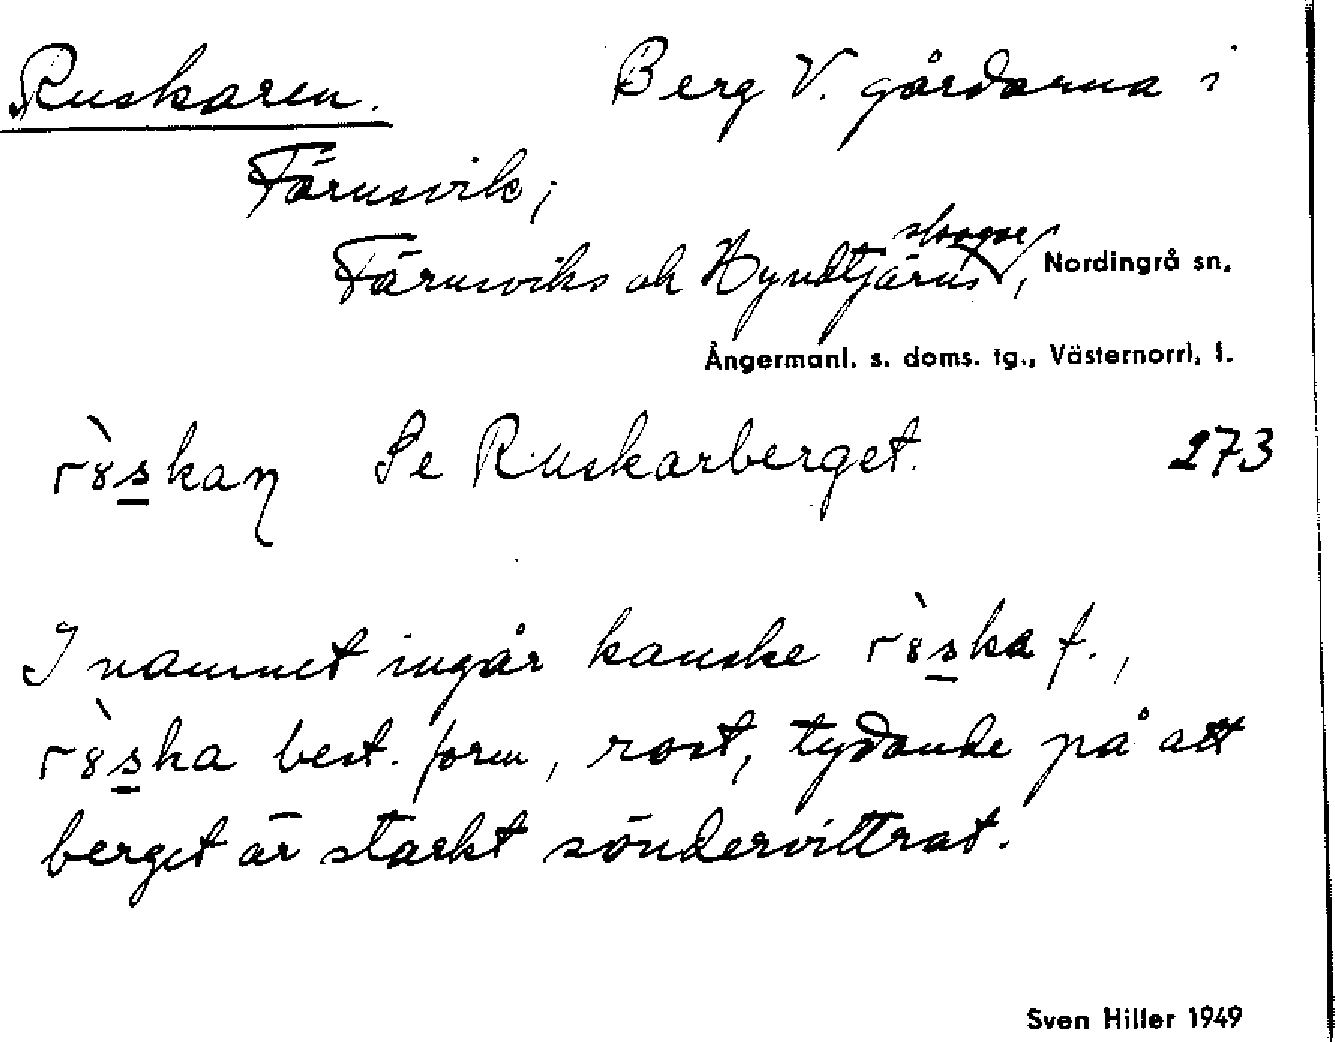 Ruskaren. Berg V. gårdarna i
Färnsvik;
Färnsviks och Hyndtjärns skogar, Nordingrå sn,
Ångermanl. s. doms. tg., Västernorrl, l.
rờskaη Se Ruskarberget. 273
I namnet ingår kanske rờska f.,
rờska best. form, rost, tydande på att
berget är starkt söndervittrat.
Sven Hiller 1949